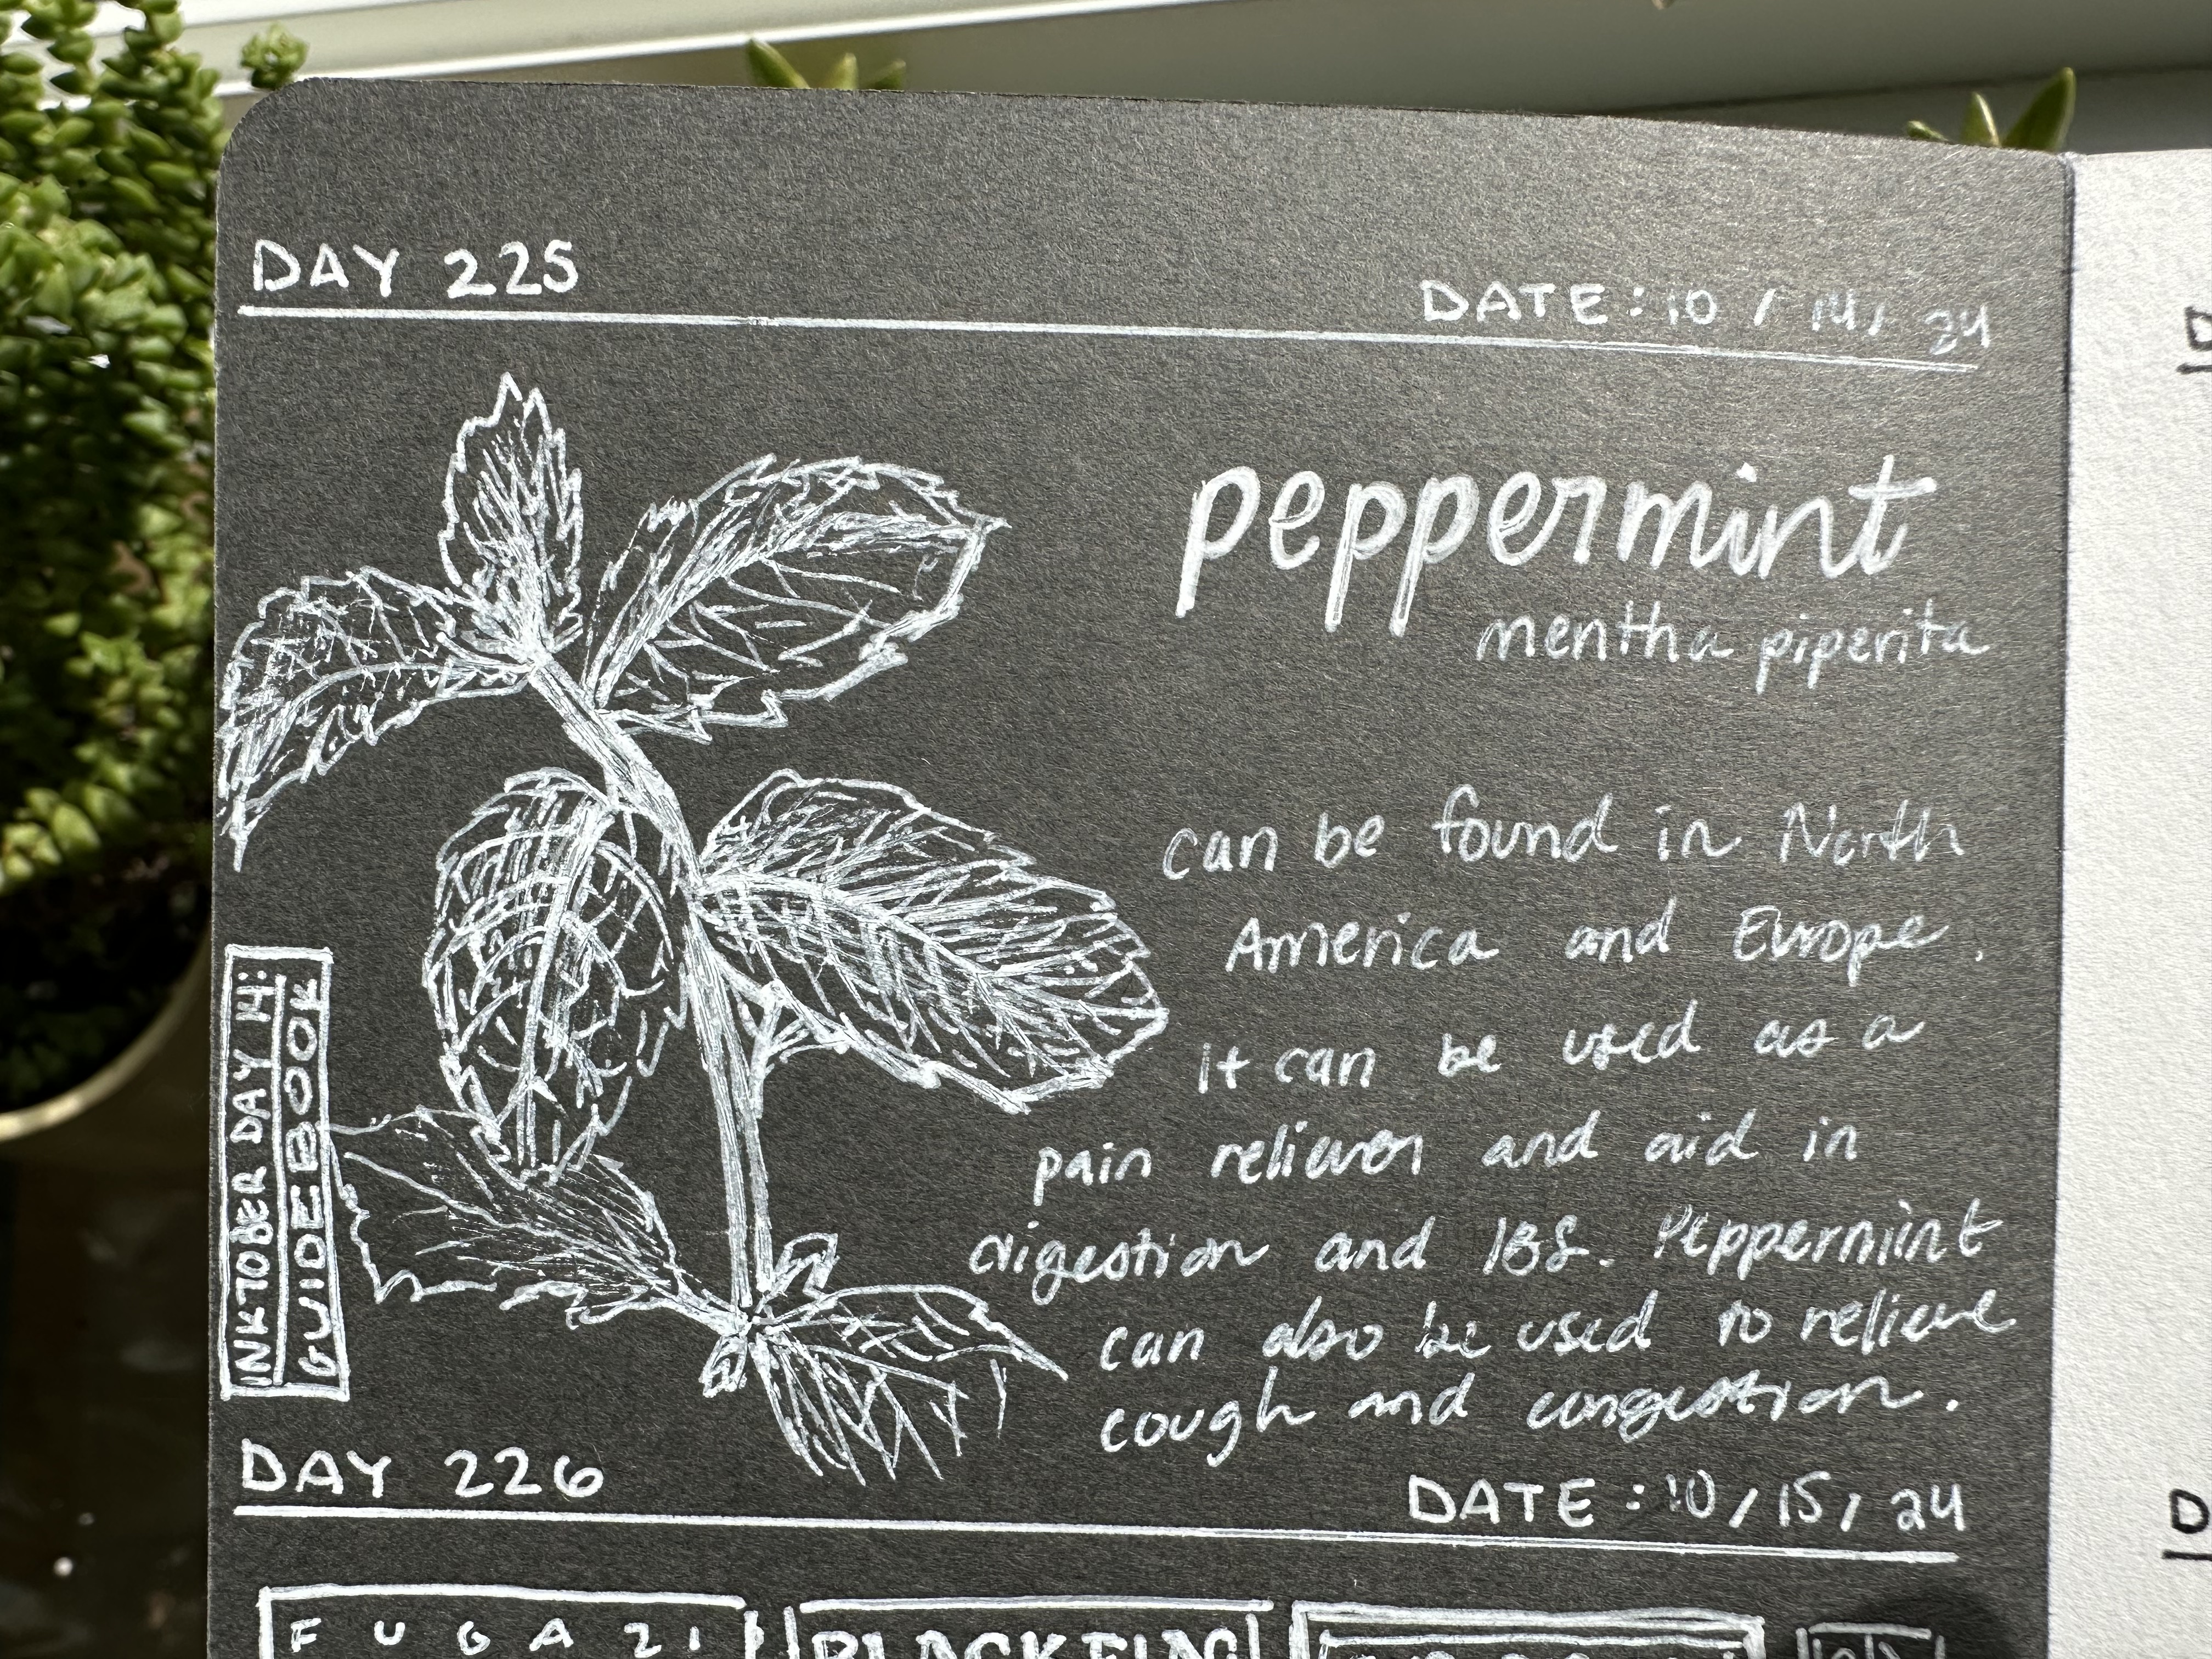 DAY 225
DATE: 10 / 14 / 24
peppermint
mentha piperita
can be found in North
America and Europe.
it can be used as a
pain reliever and aid in
digestion and IBS. Peppermint
can also be used to relieve
cough and congestion.
INKTOBER DAY 14:
GUIDEBOOK
DAY 226
DATE: 10 / 15 / 24
FUGAZI
BLACK FLAG